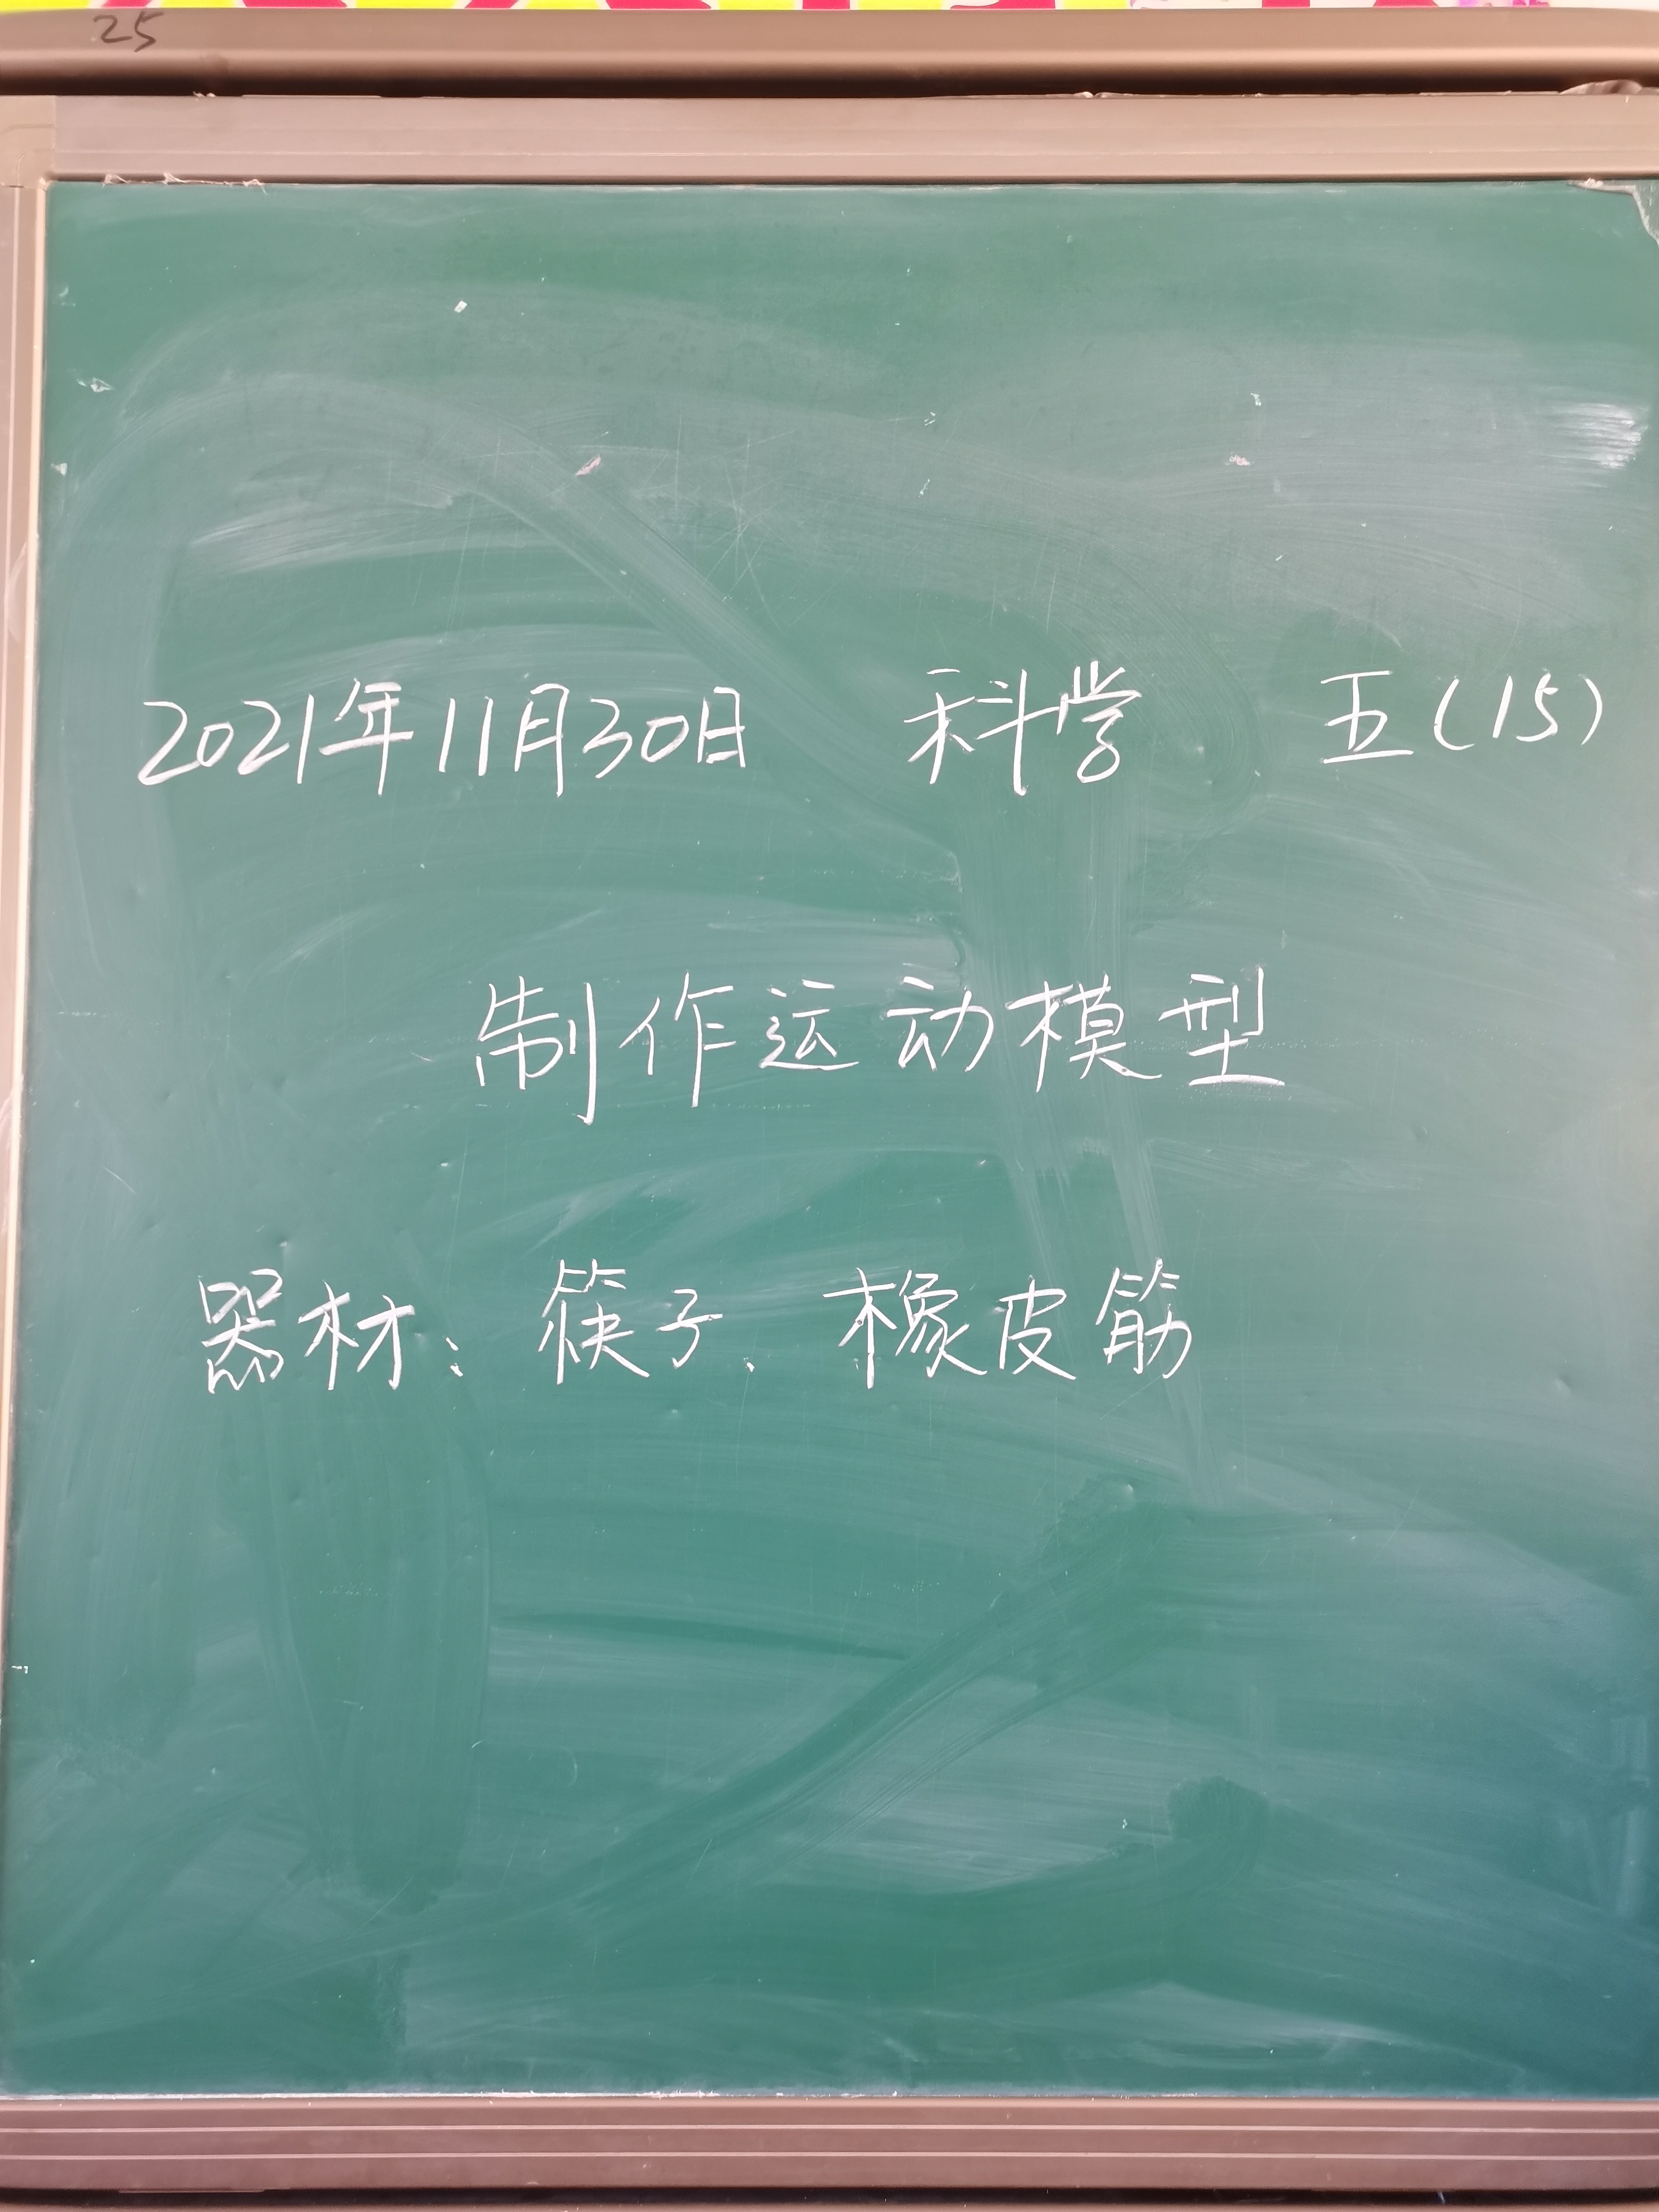 25
2021年11月30日 科学 五(15)
制作运动模型
器材：筷子、橡皮筋